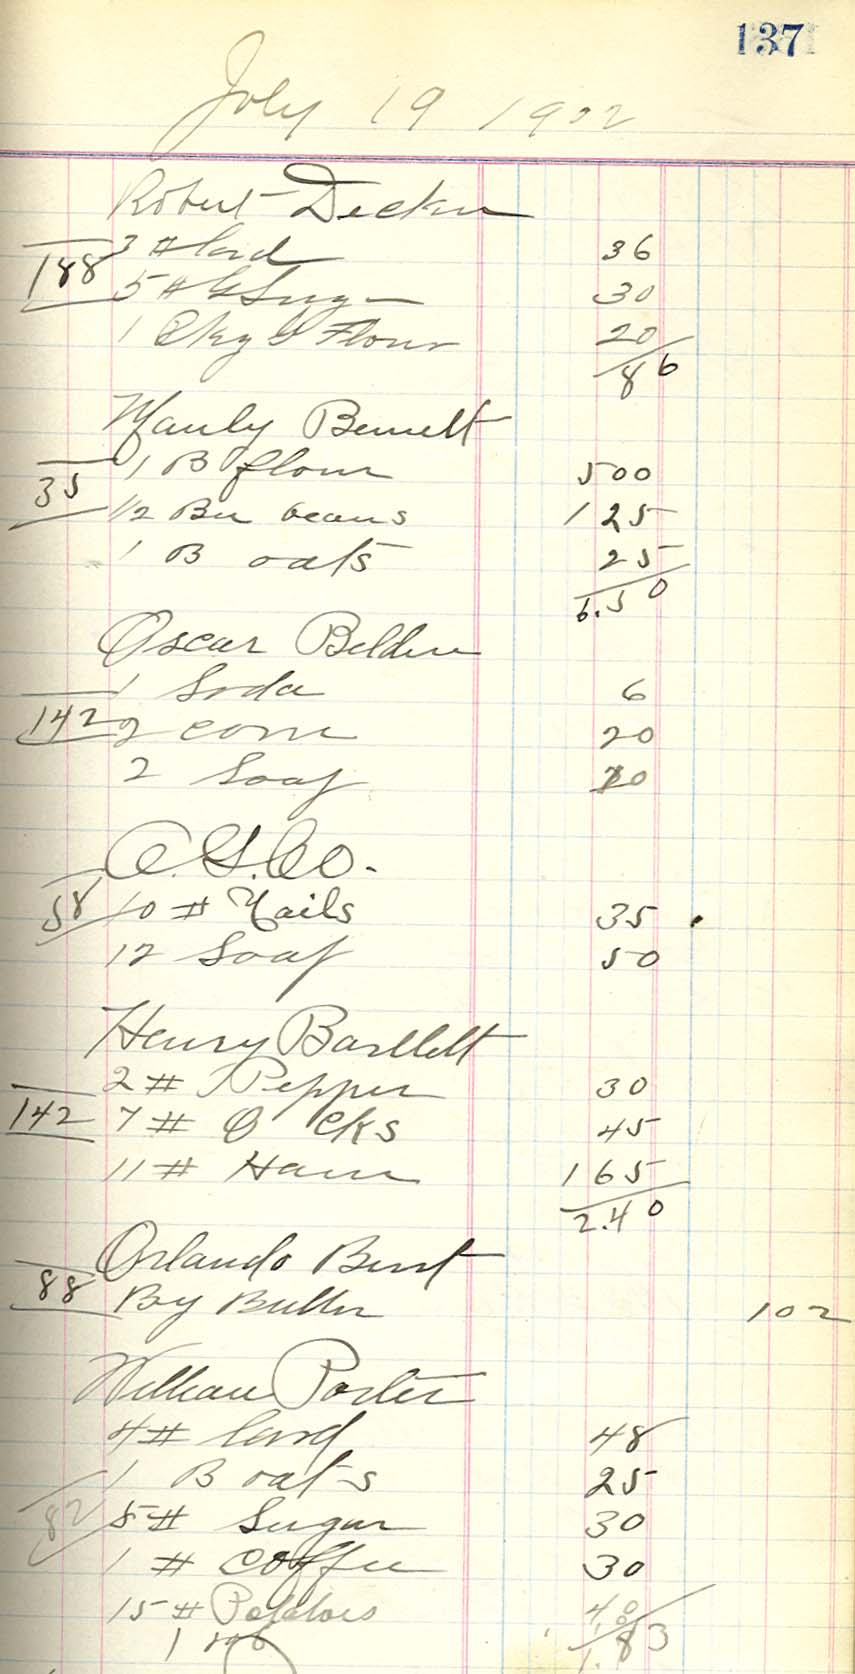 137
July 19 1902
Robert Decker
3 # lard 36
188
5 # G Sugar 30
1 Pkg Flour 20
86
Manly Bennett
1 B flour 500
35
1/2 Bu beans 125
1 B oats 25
6.50
Oscar Belden
1 Soda 6
142
2 corn 20
2 Soap
G. Co.
58
10 # Nails 35
12 Soap 50
Henry Bartlett
2 # Pepper 30
142
7 # cks 45
11 # Ham 165
2.40
Orlando Burt
88
By Butter 102
William Porter
4 # lard 48
1 B oats 25
82
5 # Sugar 30
1 # Coffee 30
15 # Potatoes 40
1
1.83